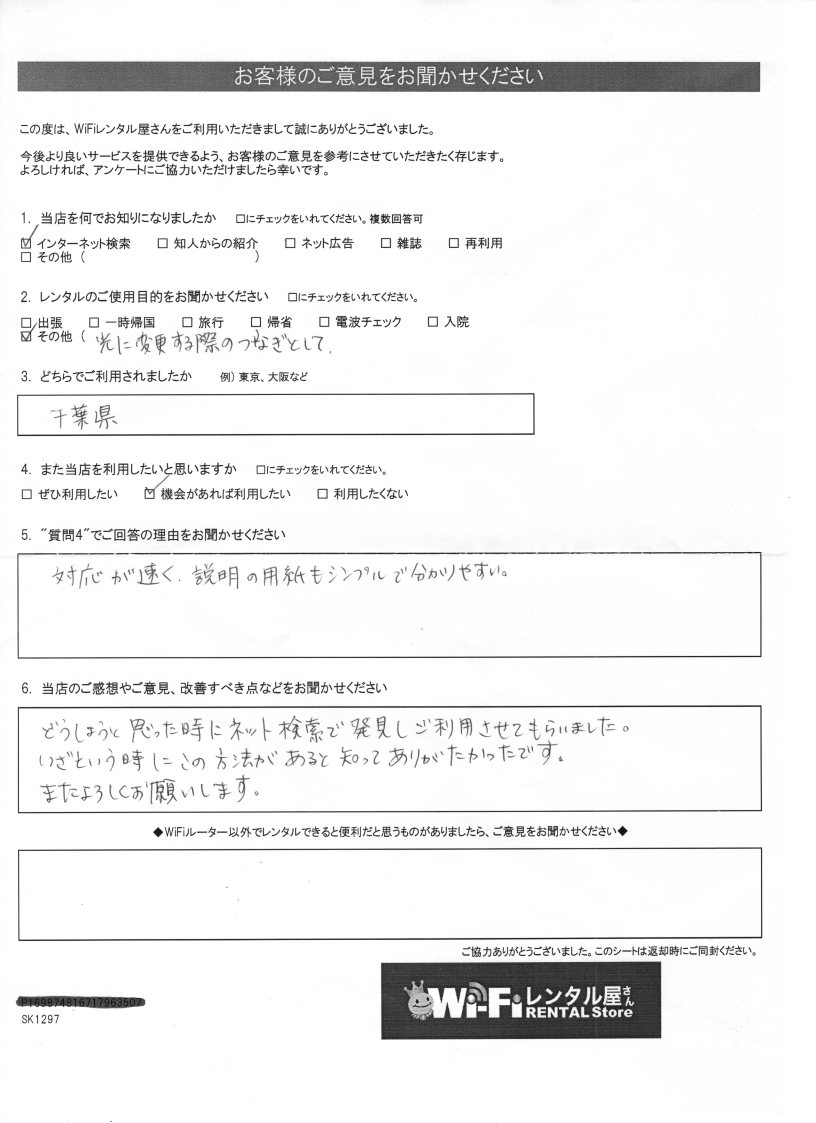 お客様のご意見をお聞かせください
この度は、WiFiレンタル屋さんをご利用いただきまして誠にありがとうございました。
今後より良いサービスを提供できるよう、お客様のご意見を参考にさせていただきたく存じます。
よろしければ、アンケートにご協力いただけましたら幸いです。
1. 当店を何でお知りになりましたか □にチェックをいれてください。複数回答可
☑ インターネット検索 □ 知人からの紹介 □ ネット広告 □ 雑誌 □ 再利用
□ その他 ( )
2. レンタルのご使用目的をお聞かせください □にチェックをいれてください。
□ 出張 □ 一時帰国 □ 旅行 □ 帰省 □ 電波チェック □ 入院
☑ その他 ( 光に変更する際のつなぎとして.
3. どちらでご利用されましたか 例) 東京、大阪など
千葉県
4. また当店を利用したいと思いますか □にチェックをいれてください。
□ ぜひ利用したい ☑ 機会があれば利用したい □ 利用したくない
5. "質問4"でご回答の理由をお聞かせください
対応が速く、説明の用紙もシンプルで分かりやすい。
6. 当店のご感想やご意見、改善すべき点などをお聞かせください
どうしようと思った時にネット検索で発見しご利用させてもらいました。
いざという時にこの方法があると知ってありがたかったです。
またよろしくお願いします。
◆WiFiルーター以外でレンタルできると便利だと思うものがありましたら、ご意見をお聞かせください◆
ご協力ありがとうございました。このシートは返却時にご同封ください。
SK1297
Wi-Fiレンタル屋さん
RENTAL Store